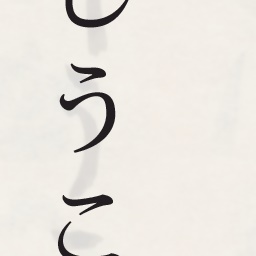 しうこ